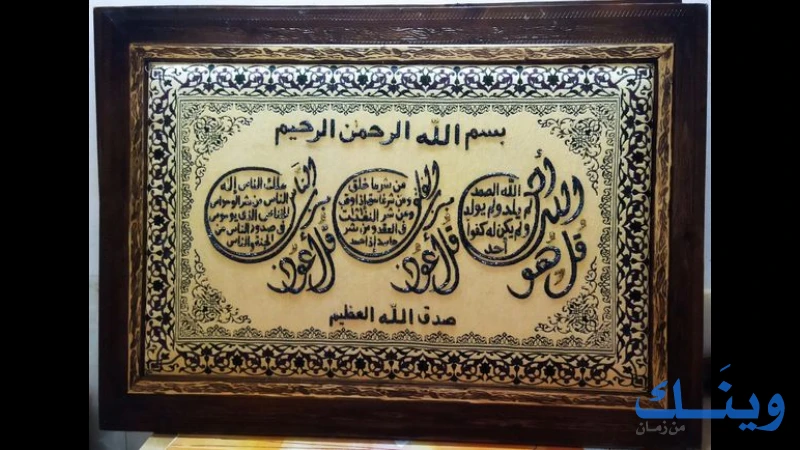 بسم الله الرحمن الرحيم
قل هو الله أحد
الله الصمد
لم يلد ولم يولد
ولم يكن له كفوا
أحد
قل أعوذ برب الفلق
من شر ما خلق
ومن شر غاسق إذا وقب
ومن شر النفثت
في العقد ومن شر
حاسد إذا حسد
قل أعوذ برب الناس
ملك الناس إله
الناس من شر الوسواس
الخناس الذي يوسوس
في صدور الناس من
الجنة والناس
صدق الله العظيم
وينك
من زمان